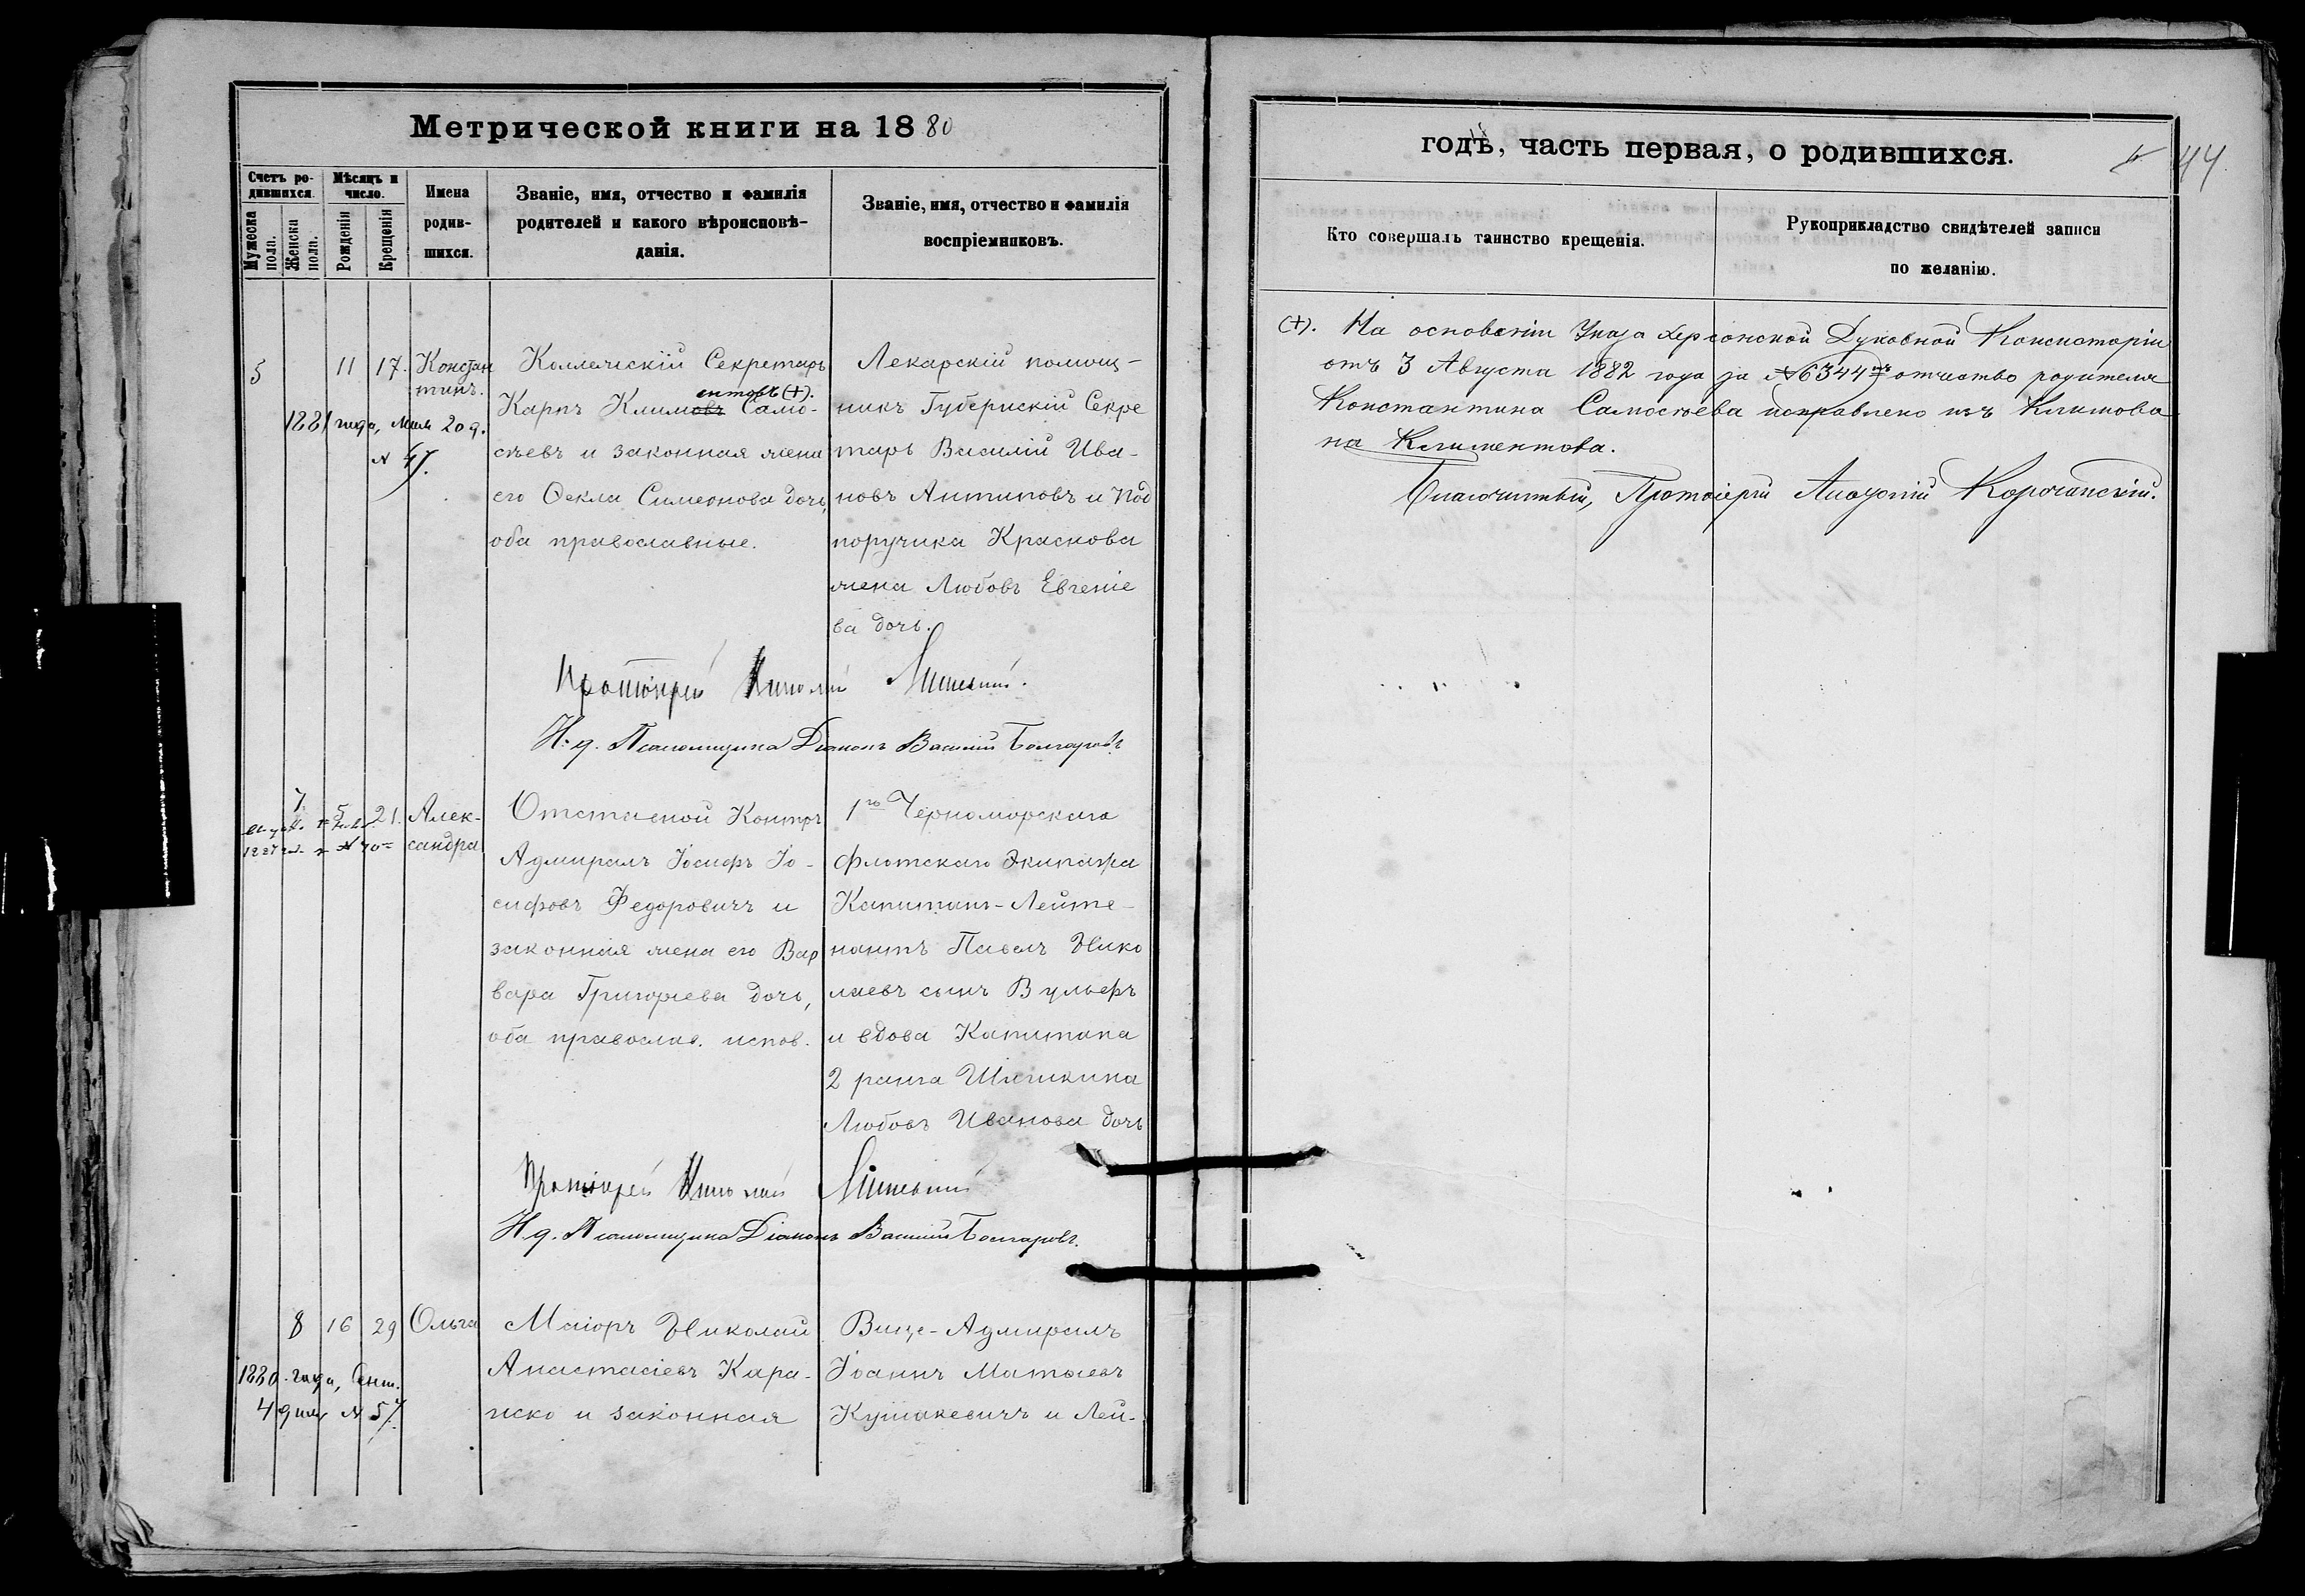 Метрической книги на 1880
Счетъ ро-
дившихся.
Мѣсяцъ и
число.
Мужеска
пола.
Женска
пола.
Рожденія
Крещенія
Имена
родив-
шихся.
Званіе, имя, отчество и фамилія
родителей и какого вѣроисповѣ-
данія.
Званіе, имя, отчество и фамилія
воспріемниковъ.
5
11
17.
Констан
тинъ.
1881 года, Мая 20 д.
№ 47.
Коллежскій Секретарь
ентовъ (+).
Карпъ Климовъ Само-
сѣевъ и законная жена
его Ѳекла Симеонова дочь,
оба православные.
Лекарскій помощ-
никъ Губернскій Секре
тарь Василій Ива-
новъ Антиповъ и Под
поручика Краснова
жена Любовь Евгеніе
ва дочь.
Протоіерей Николай
Н. д. Псаломщика Діаконъ Василій Болгаровъ
7.
5
21.
Алек-
сандра
№ 70
Отставной Контръ
Адмиралъ Іосифъ Іо-
сифовъ Федоровичъ и
законная жена его Вар
вара Григорьева дочь,
оба православ. испов.
1го Черноморскаго
Флотскаго Экипажа
Капитанъ-Лейте-
нантъ Павелъ Нико
лаевъ сынъ Вульфъ
и вдова Капитана
2 ранга Шишкина
Любовь Иванова дочь
Протоіерей Николай
Н. д. Псаломщика Діаконъ Василій Болгаровъ.
8
16
29
Ольга
1880 года, Сент.
4 дня № 57.
Маіоръ Николай
Анастасіевъ Кара-
иско и законная
Вице-Адмиралъ
Іоаннъ Матѳеевъ
Кушакевичъ и Лей-
годѣ, часть первая, о родившихся.
44
Кто совершалъ таинство крещенія.
Рукоприкладство свидѣтелей записи
по желанію.
(+). На основаніи Указа Херсонской Духовной Консисторіи
отъ 3 Августа 1882 года за №6344мъ отчество родителя
Константина Самосѣева исправлено изъ Климова
на Климентова.
Благочинный, Протоіерей Корочанскій.